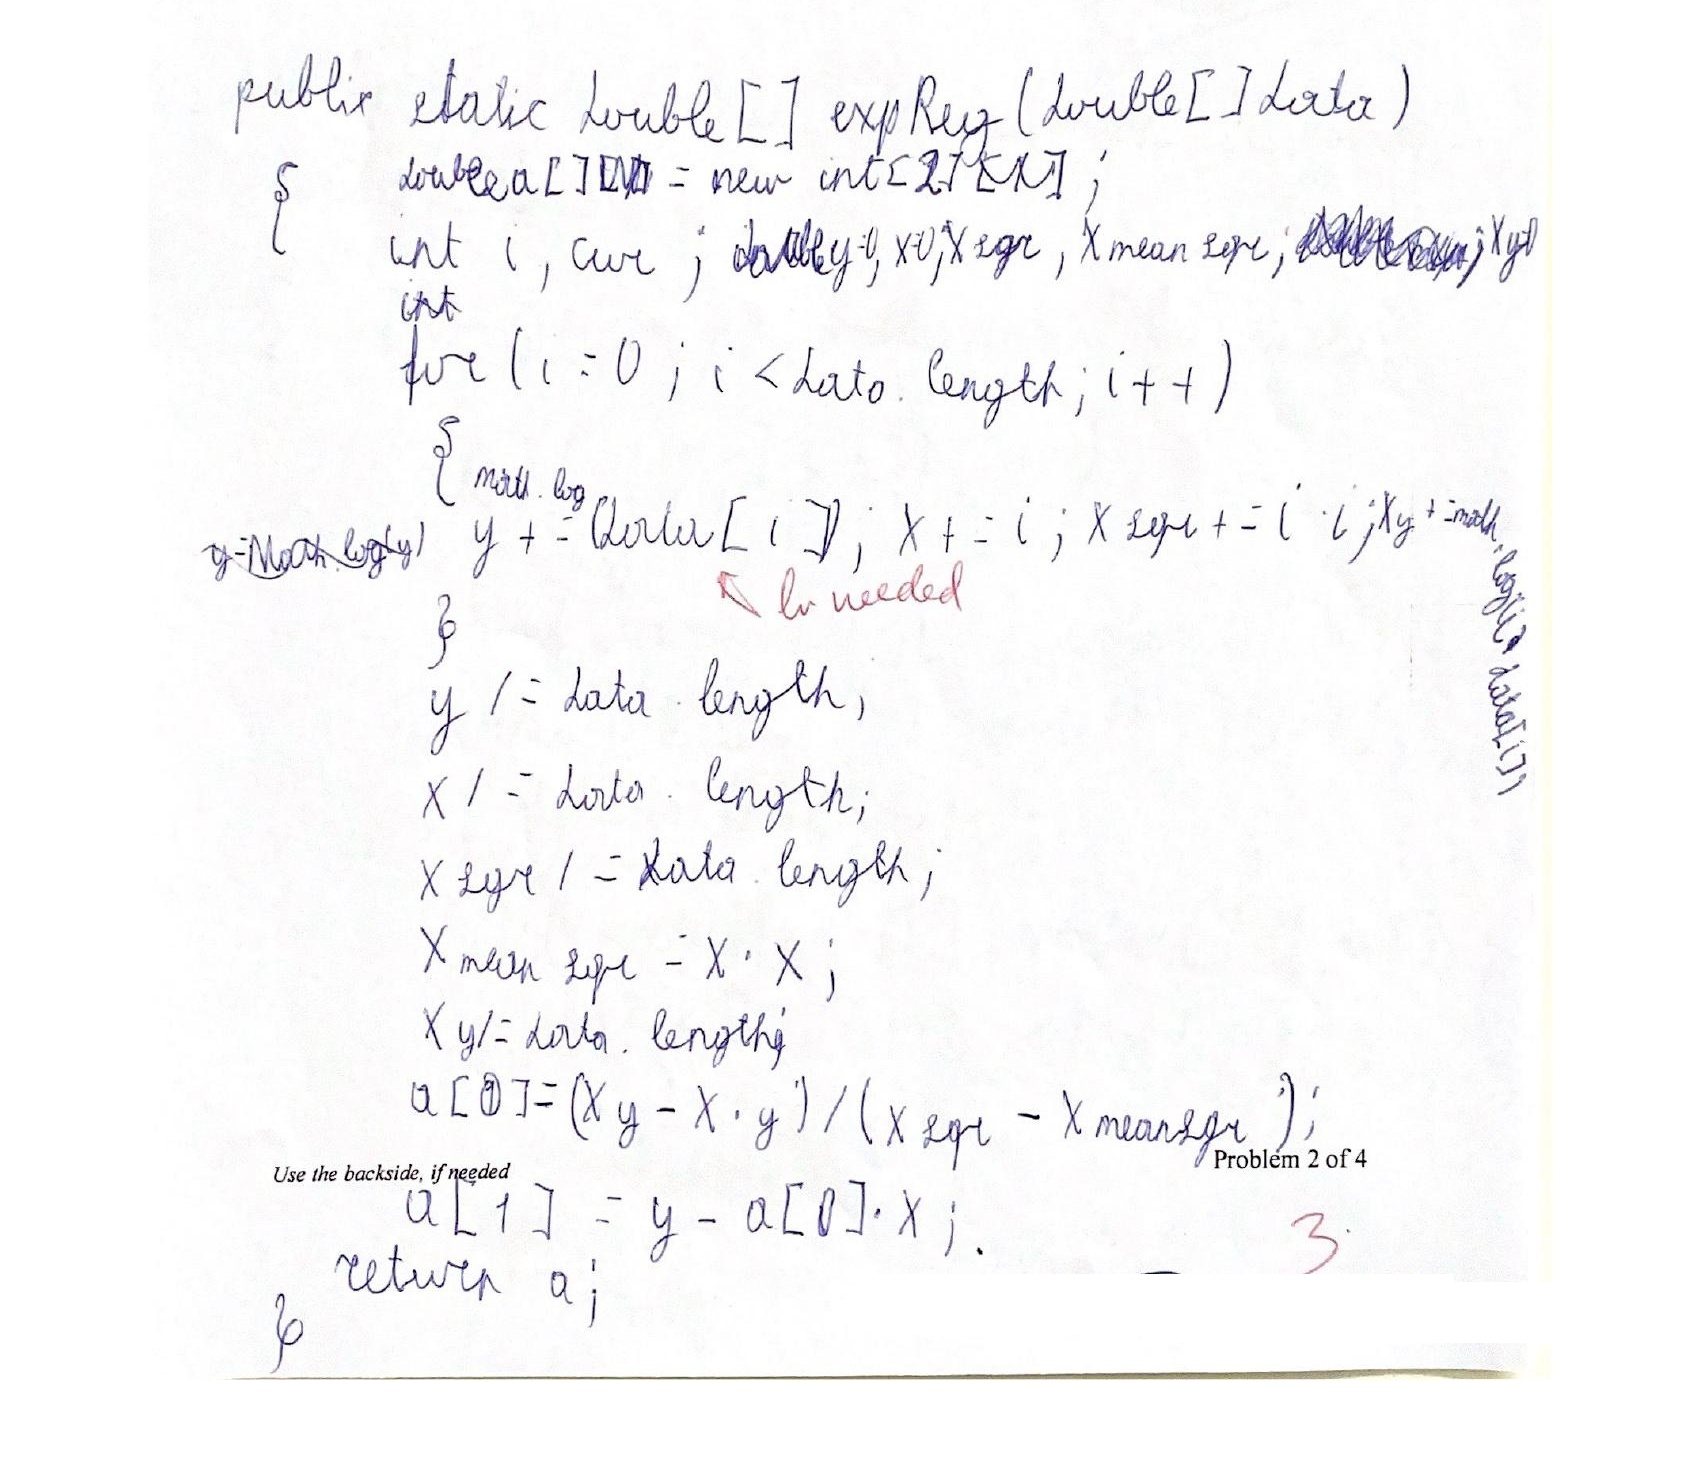 public static double[] expReg(double[] data)
{ double a[] = new int[2];
int i, cur; double y=0, x=0, xsqr, xmeansqr; xy=0
int
for (i = 0; i < data.length; i++)
{ math.log
y=Math.log(y) y += (data[i]); x += i; xsqr += i·i; xy += math.log(i · data[i])
ln needed
}
y /= data.length;
x /= data.length;
xsqr /= data.length;
xmeansqr = x·x;
xy /= data.length;
a[0] = (xy - x·y)/(xsqr - xmeansqr);
Use the backside, if needed Problem 2 of 4
a[1] = y - a[0]·x;
3.
return a;
}